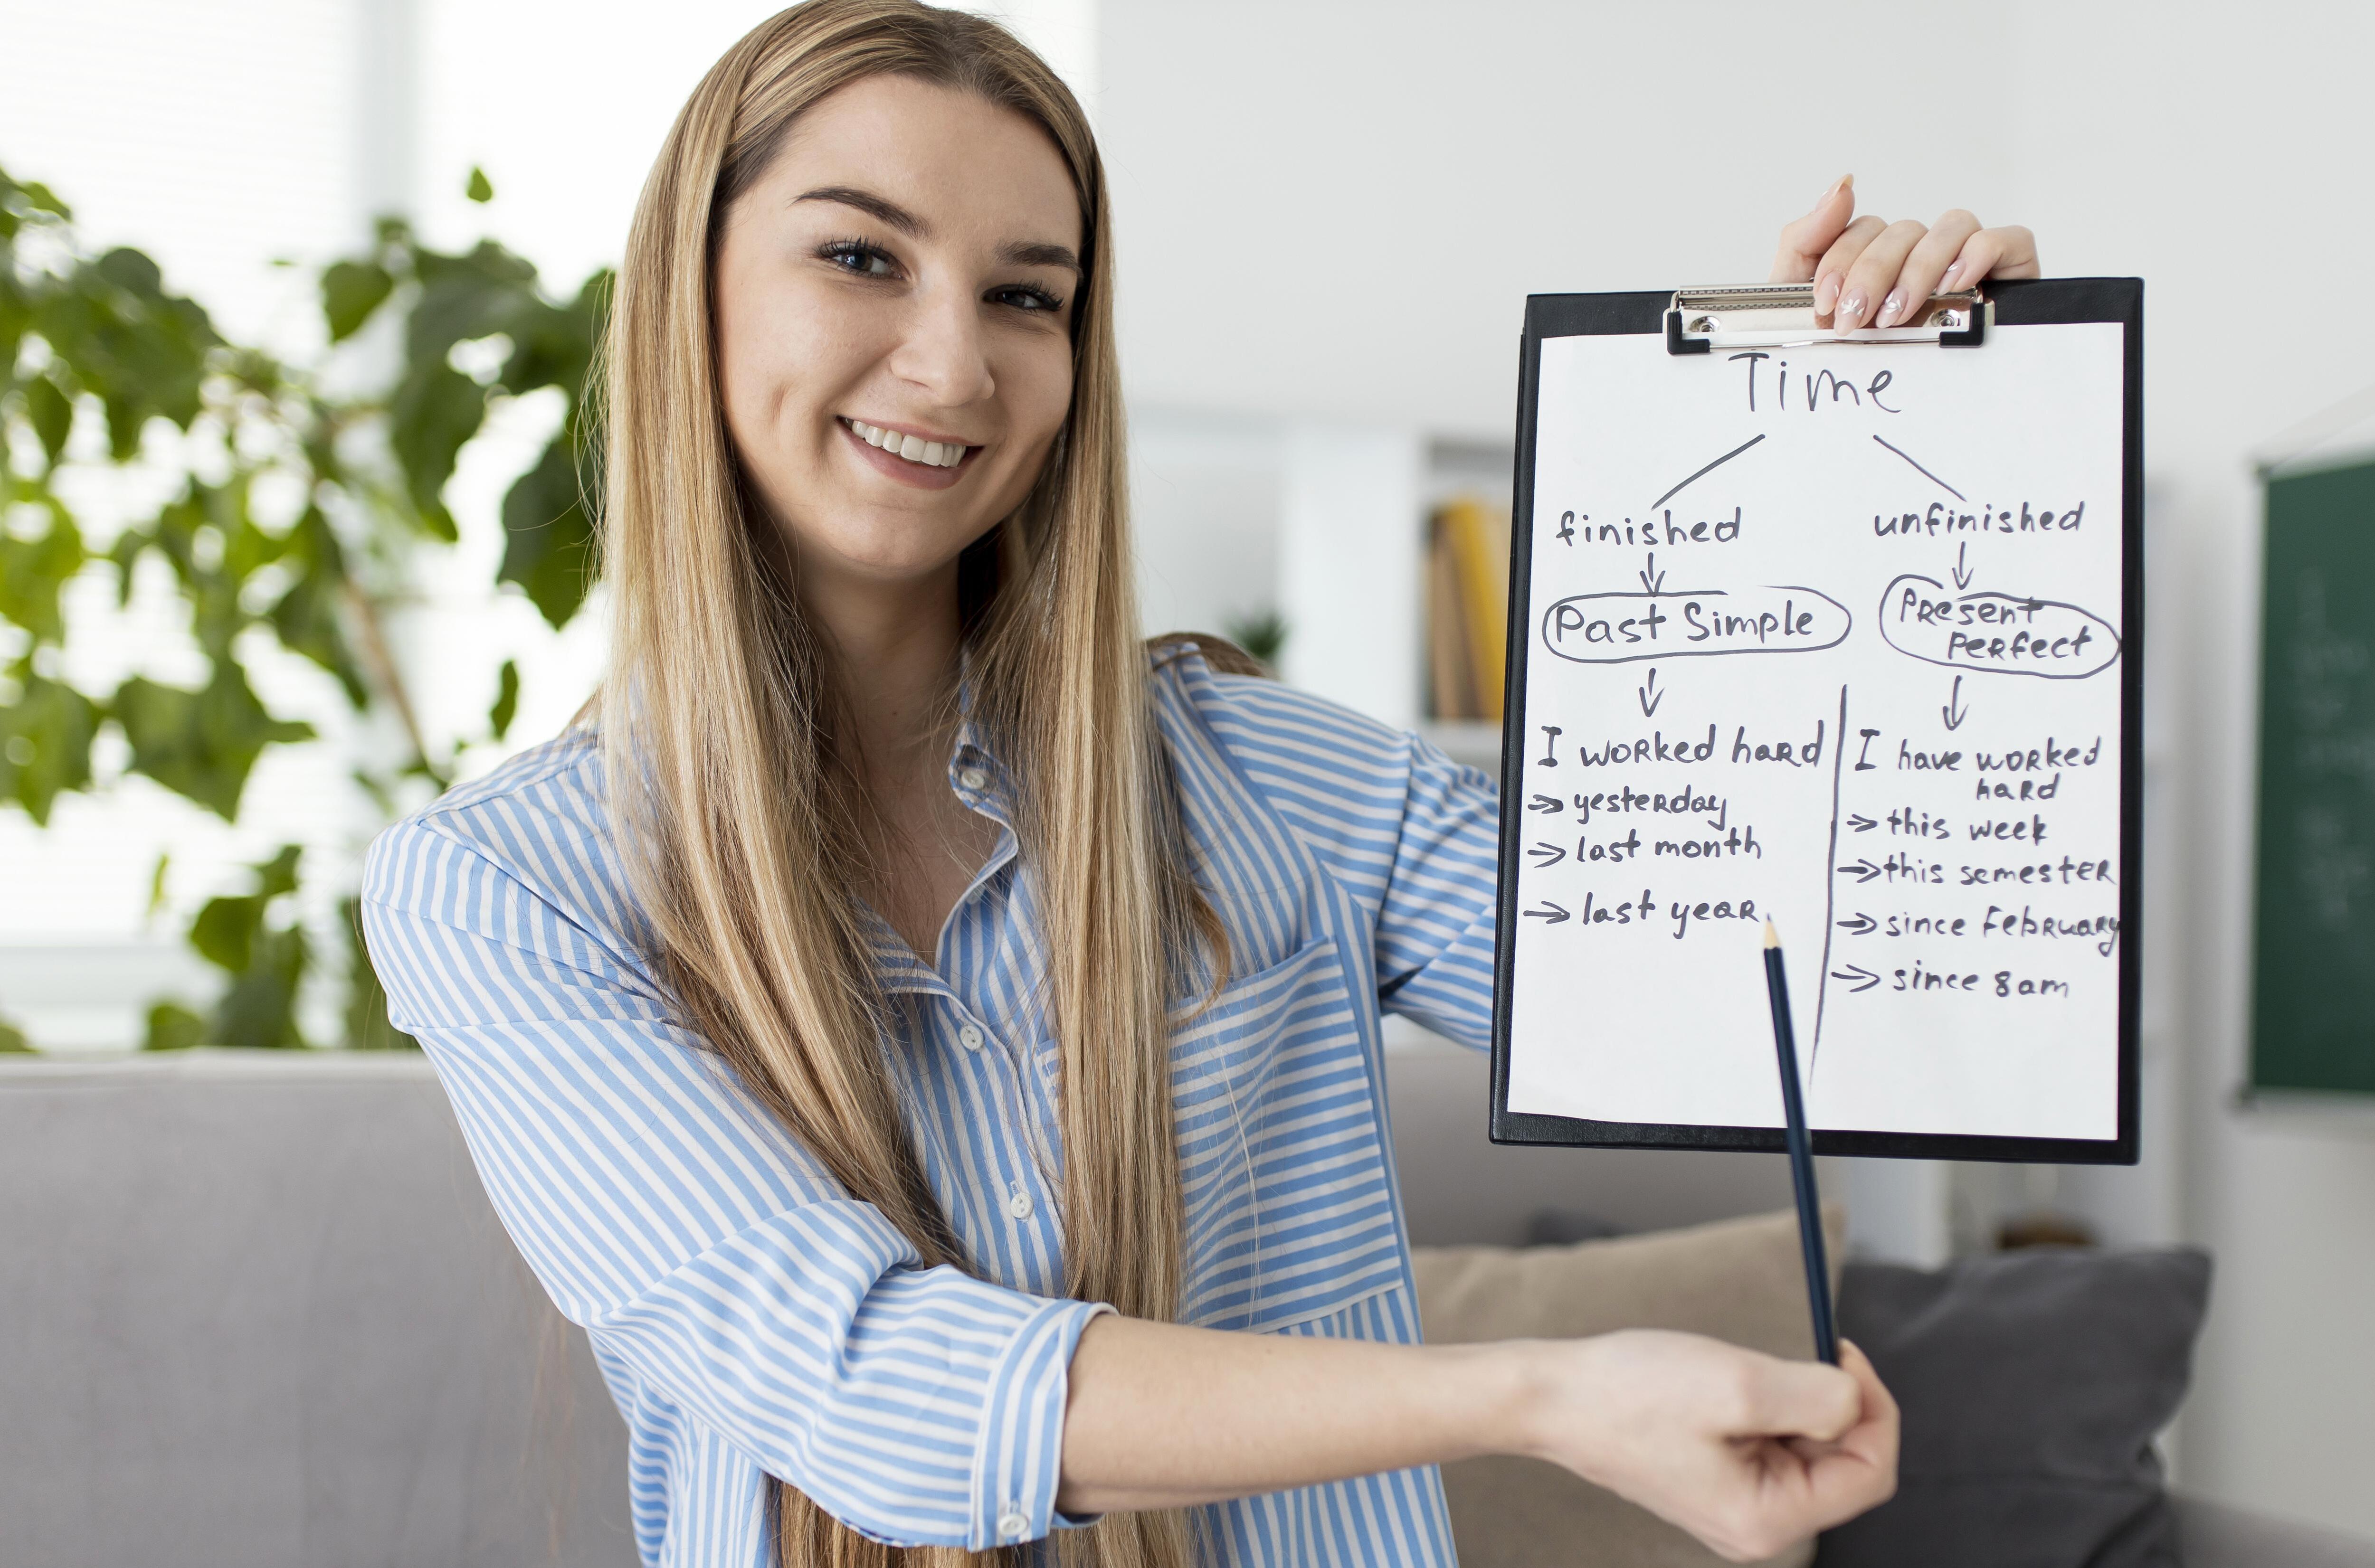 Time
finished
Past Simple
I worked hard
→ yesterday
→ last month
→ last year
unfinished
Present
Perfect
I have worked
hard
→ this week
→ this semester
→ since February
→ since 8am